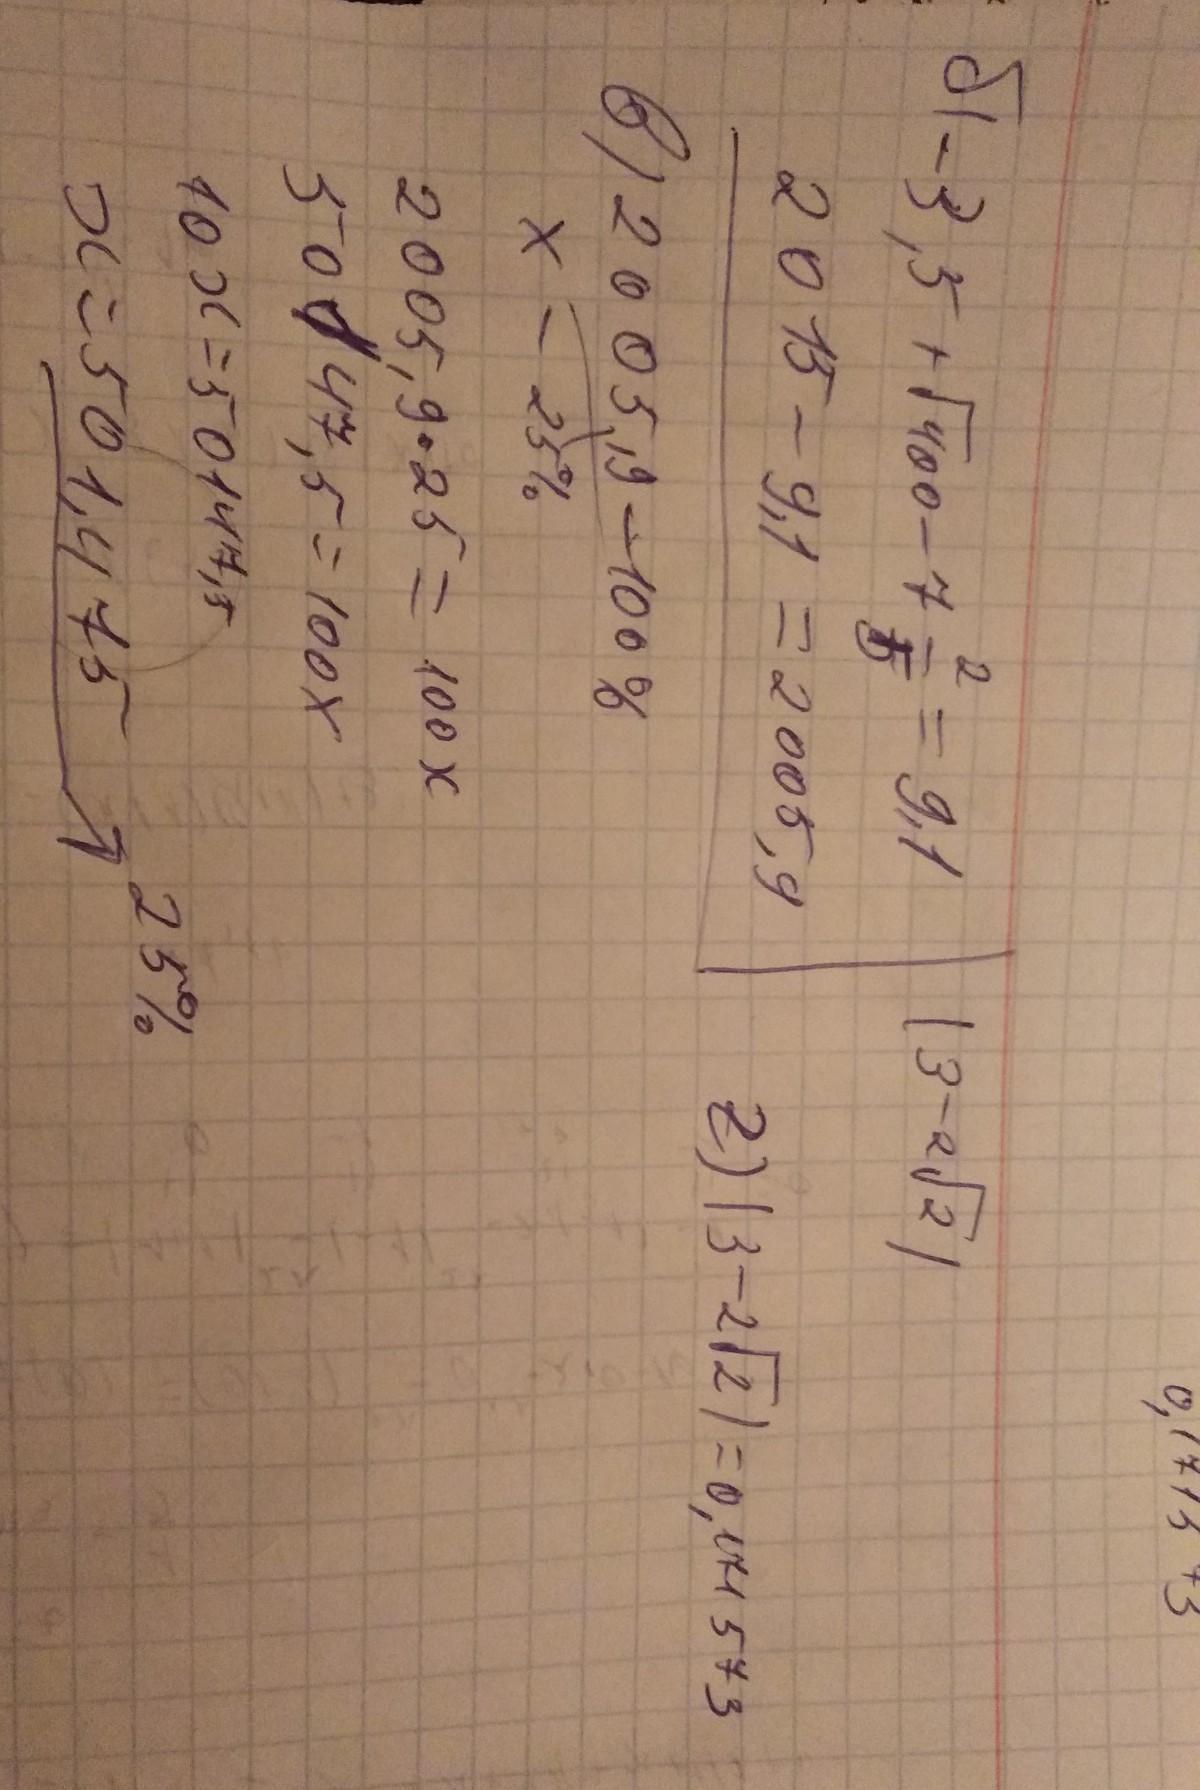 б) -3,5 + √400 - 7 2/5 = 9,1
2015 - 9,1 = 2005,9
в) 2005,9 - 100%
x - 25%
2005,9 • 25 = 100x
50147,5 = 100x
10x = 50147,5
x = 501,475
25%
|3-2√2|
г) |3-2√2| = 0,171573